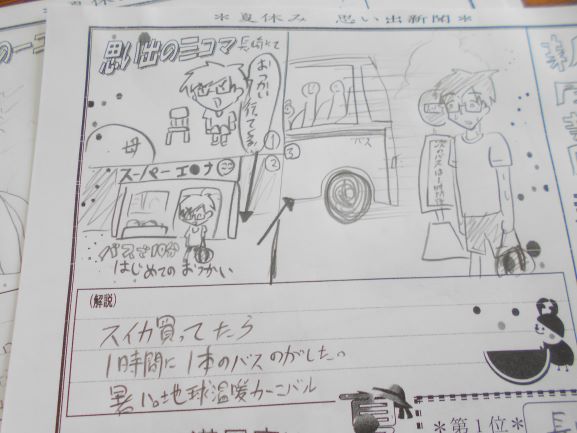 ＊夏休み 思い出新聞＊
思い出の三コマ
おつかい行ってくる!!
①
母
②
③
バス
スーパーエ●ナ
バスで10分
はじめてのおつかい
(解説)
スイカ買ってたら
1時間に1本のバスのがした。
暑い。地球温暖カーニバル
＊第1位＊